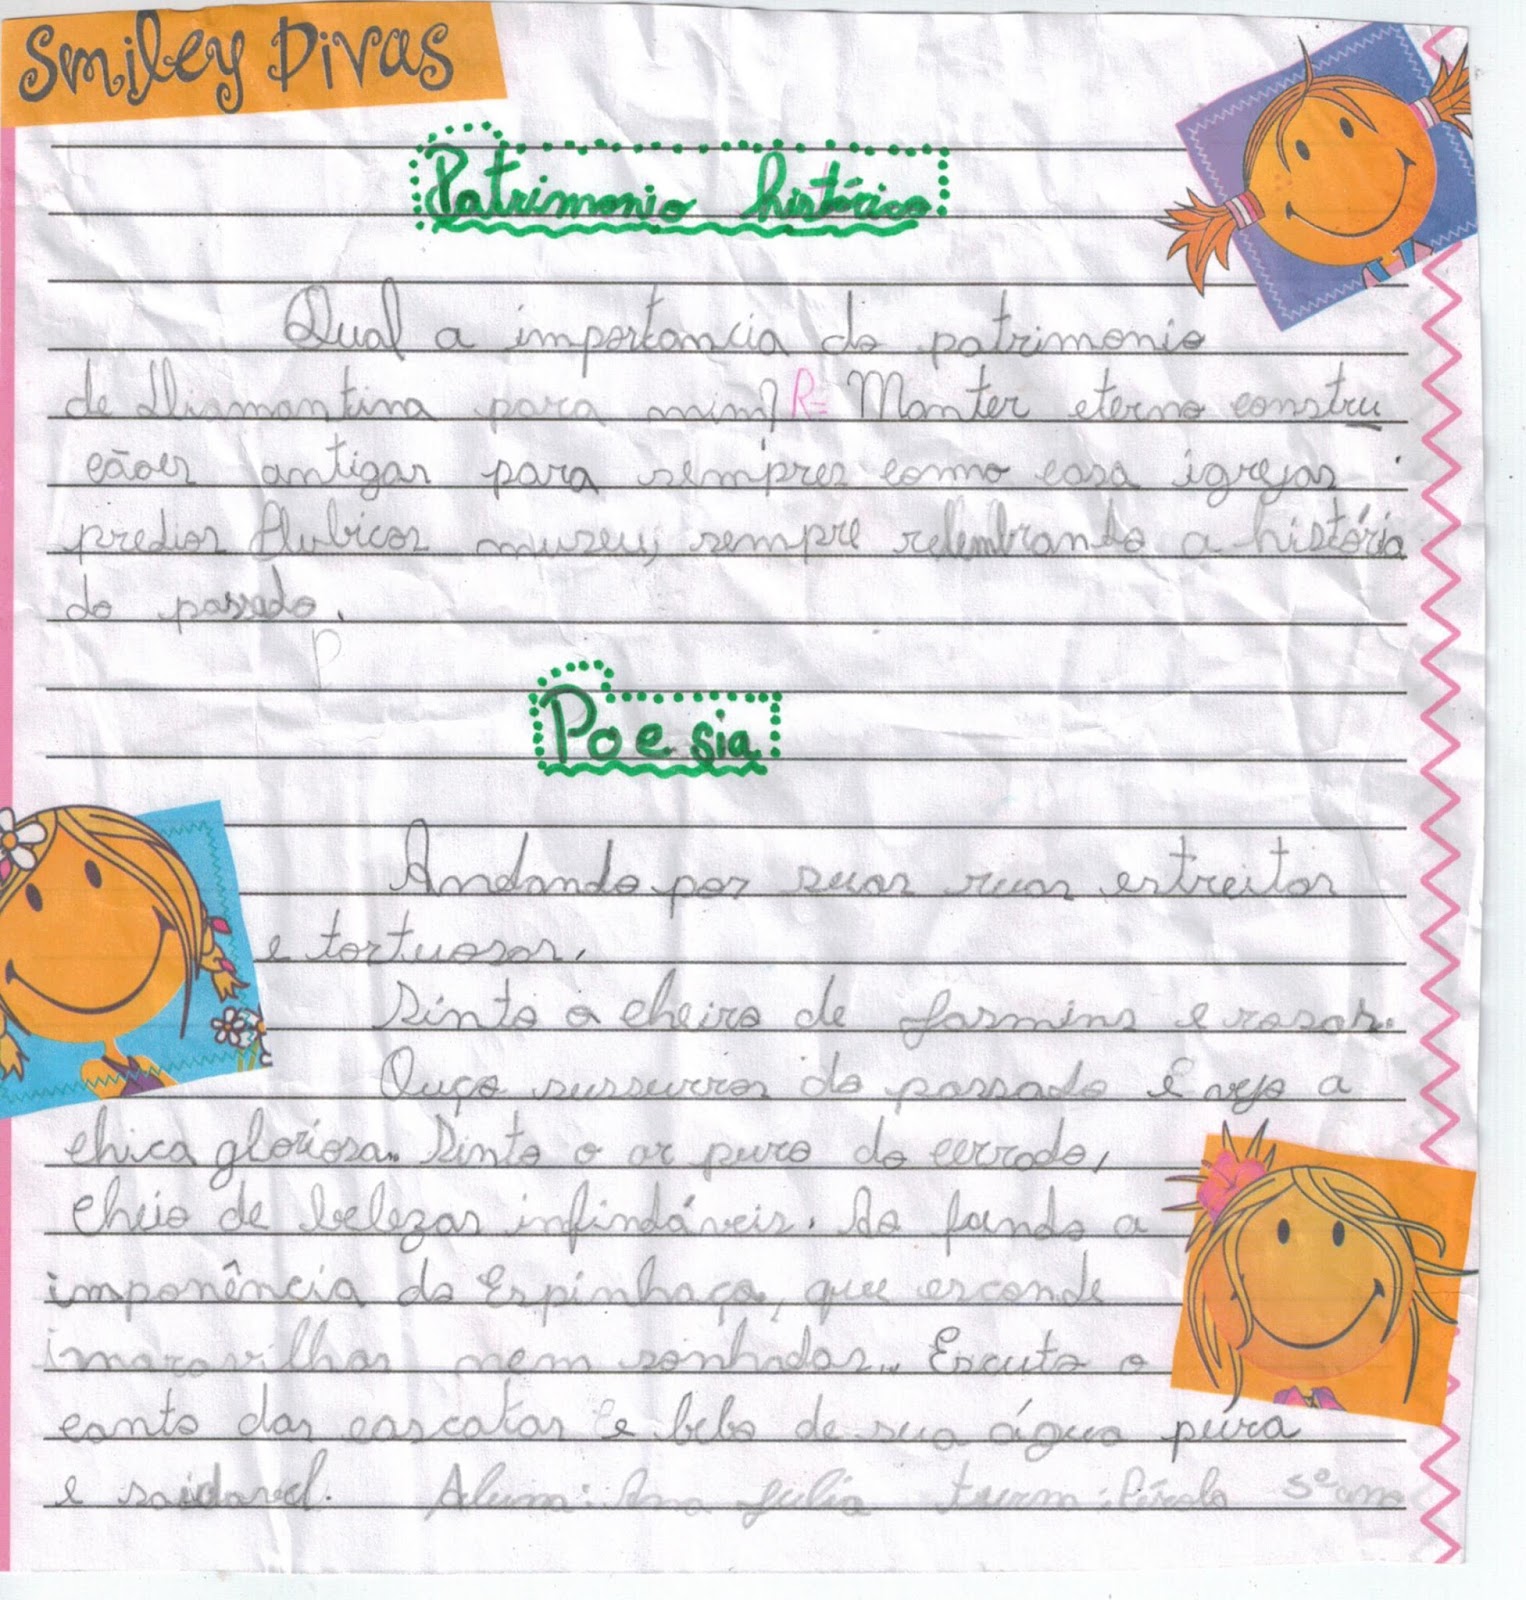 Smiley Divas
Patrimonio histórico
Qual a importancia do patrimonio
de Diamantina para mim? R= Manter eterno constru
cãoes antigas para sempres como casa igrejas
predios Plubicos museu, sempre relembrando a história
do passado.
P
Poesia
Andando por suas ruas estreitas
e tortuosas,
Sinto o cheiro de Jasmins e rosas.
Ouço sussurros do passado E vejo a
chica gloriosa... Sinto o ar puro do cerrado,
cheio de belezas infindáveis. Ao fundo a
imponência do Espinhaço, que esconde
maravilhas nem sonhadas... Escuto o
canto das cascatas e bebo de sua água pura
e saudavel. Aluna: Ana Julia turma: Pérola 5º ano